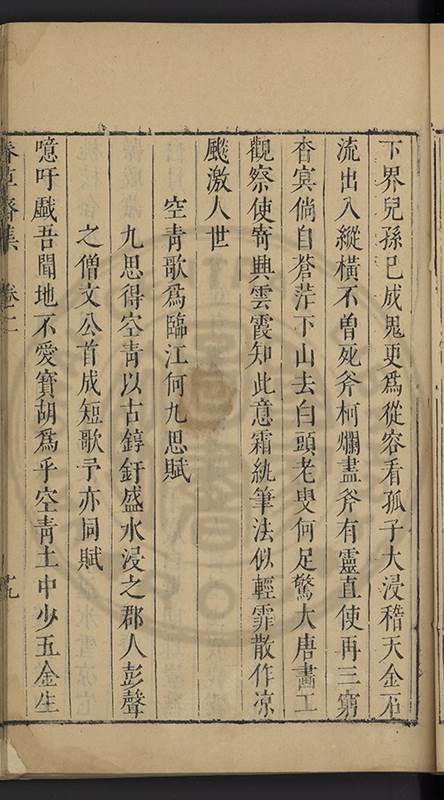 下界兒孫已成鬼更爲從容看孤子大浸稽天金石
流出入縱橫不曽死斧柯爛盡斧有靈直使再三窮
杳㝠倘自蒼茫下山去白頭老叟何足驚大唐畫工
觀察使寄興雲霞知此意霜紈筆法似輕霏散作凉
飈激人世
空青歌爲臨江何九思賦
九思得空青以古錞釪盛水浸之郡人彭聲
之僧文公首成短歌予亦同賦
噫吁戲吾聞地不愛寶胡爲乎空青土中少五金生
集 卷二
九